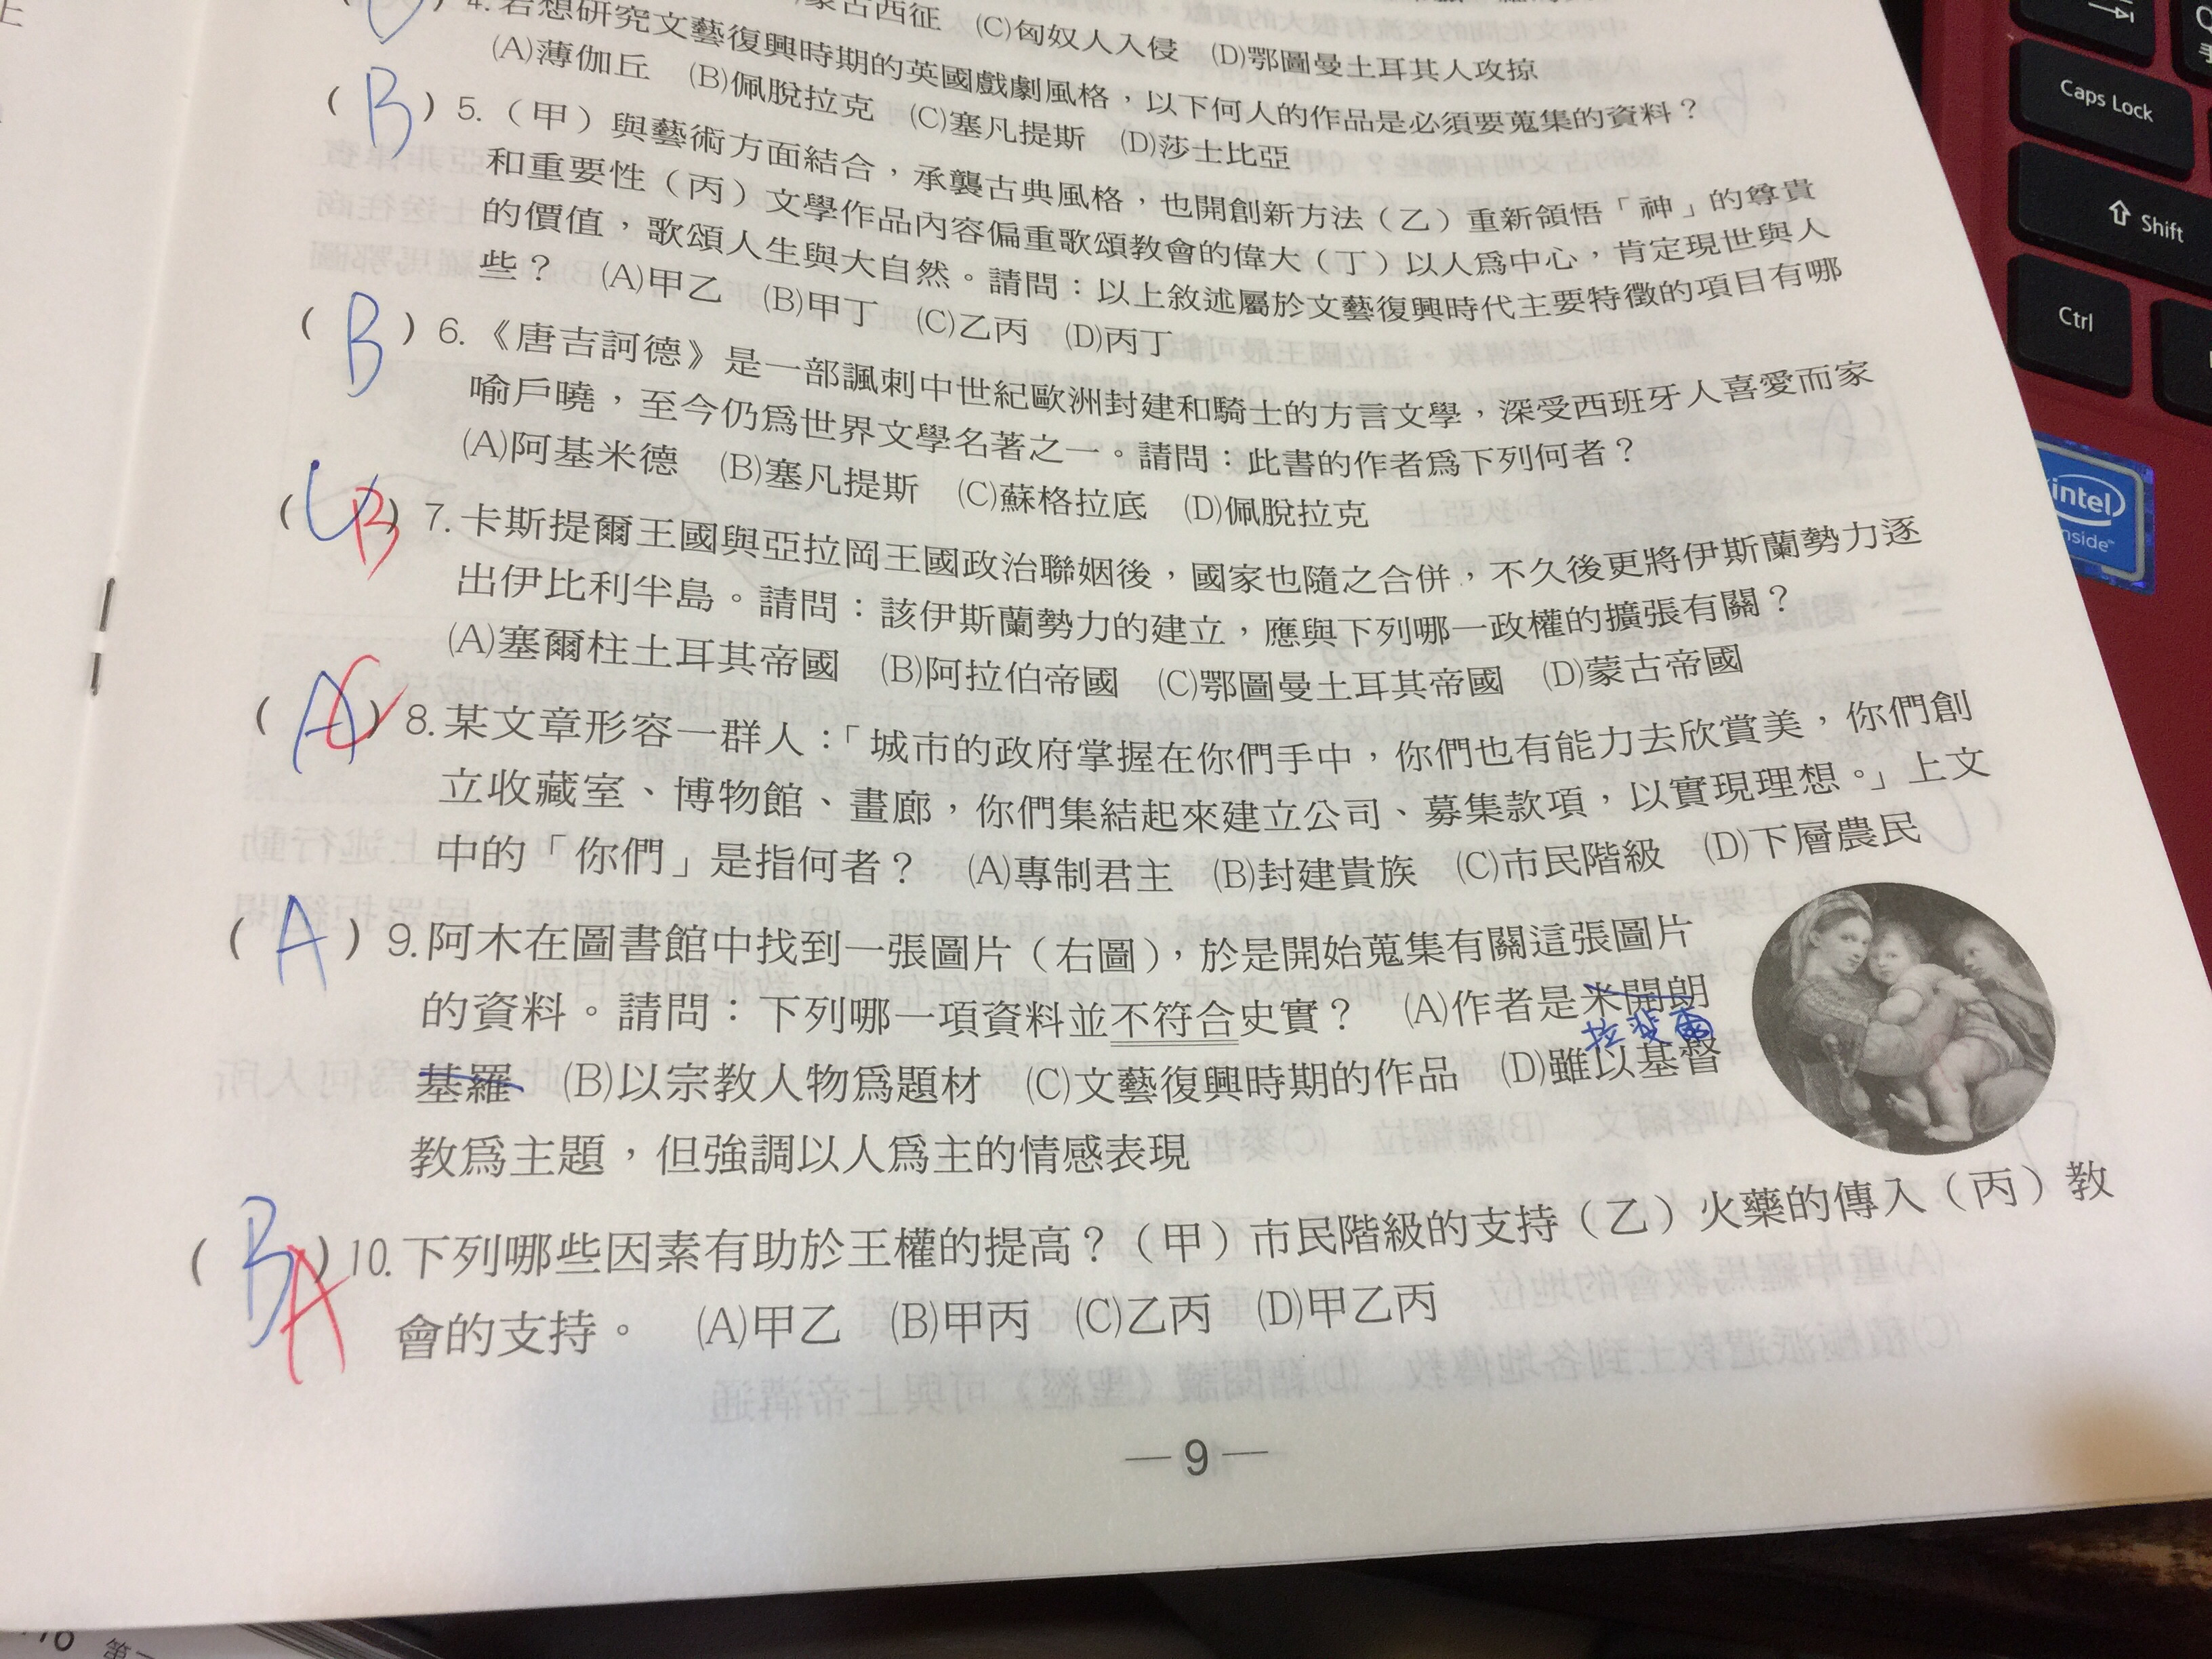 蒙古西征 (C)匈奴人入侵 (D)鄂圖曼土耳其人攻掠
4.若想研究文藝復興時期的英國戲劇風格，以下何人的作品是必須要蒐集的資料？
(A)薄伽丘 (B)佩脫拉克 (C)塞凡提斯 (D)莎士比亞
( B ) 5.（甲）與藝術方面結合，承襲古典風格，也開創新方法（乙）重新領悟「神」的尊貴
和重要性（丙）文學作品內容偏重歌頌教會的偉大（丁）以人為中心，肯定現世與人
的價值，歌頌人生與大自然。請問：以上敘述屬於文藝復興時代主要特徵的項目有哪
些？ (A)甲乙 (B)甲丁 (C)乙丙 (D)丙丁
( B ) 6.《唐吉訶德》是一部諷刺中世紀歐洲封建和騎士的方言文學，深受西班牙人喜愛而家
喻戶曉，至今仍為世界文學名著之一。請問：此書的作者為下列何者？
(A)阿基米德 (B)塞凡提斯 (C)蘇格拉底 (D)佩脫拉克
( C B ) 7.卡斯提爾王國與亞拉岡王國政治聯姻後，國家也隨之合併，不久後更將伊斯蘭勢力逐
出伊比利半島。請問：該伊斯蘭勢力的建立，應與下列哪一政權的擴張有關？
(A)塞爾柱土耳其帝國 (B)阿拉伯帝國 (C)鄂圖曼土耳其帝國 (D)蒙古帝國
( A C ) 8.某文章形容一群人：「城市的政府掌握在你們手中，你們也有能力去欣賞美，你們創
立收藏室、博物館、畫廊，你們集結起來建立公司、募集款項，以實現理想。」上文
中的「你們」是指何者？ (A)專制君主 (B)封建貴族 (C)市民階級 (D)下層農民
( A ) 9.阿木在圖書館中找到一張圖片（右圖），於是開始蒐集有關這張圖片
的資料。請問：下列哪一項資料並不符合史實？ (A)作者是米開朗
拉斐爾
基羅 (B)以宗教人物為題材 (C)文藝復興時期的作品 (D)雖以基督
教為主題，但強調以人為主的情感表現
( B A ) 10.下列哪些因素有助於王權的提高？（甲）市民階級的支持（乙）火藥的傳入（丙）教
會的支持。 (A)甲乙 (B)甲丙 (C)乙丙 (D)甲乙丙
—9—
Caps Lock
⇧ Shift
Ctrl
intel
inside™